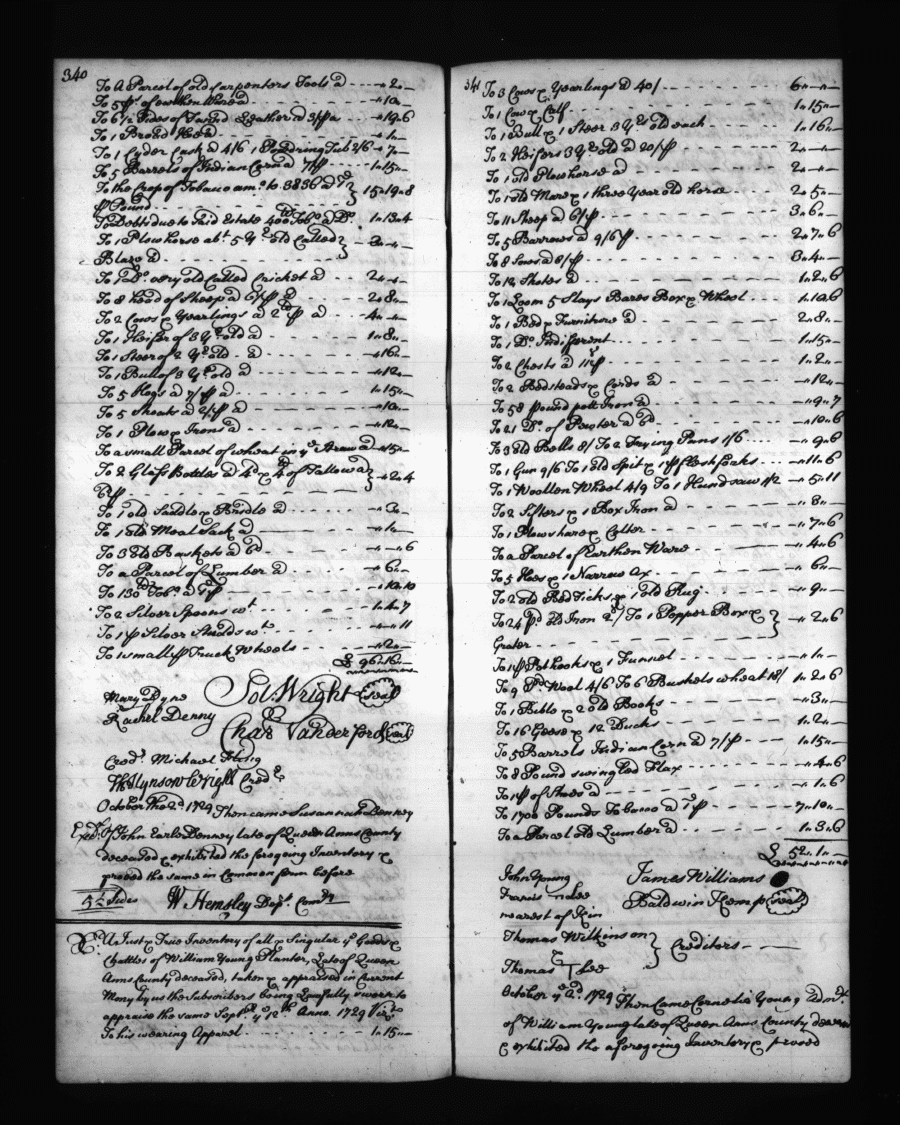 340
To A Parcel of old Carpenters Tools a --- " 2 " —
To 5 pr. of Earthen Ware a " 10 " —
To 6 1/2 Sides of Tan'd Leather a 3/ p a --- " 19 " 6
To 1 Broad Hoe a --- " 1 " —
To 1 Cyder Cask a 4/6 1 Powdring Tub 2/6 " 7 " —
To 5 Barrels of Indian Corn a 7/ p -- 1 " 15 " —
To the Crop of Tobacco am.t to 3836 a 1d } 15 " 19 " 8
p Pound
To Debts due to said Estate 400 Tobo a Do. 1 " 13 " 4
To 1 Plow horse abt. 5 Yrs old Called } 2 " — " —
Blaze a
To 1 Do. very old Called Cricket a -- 2 " — " —
To 8 Head of Sheep a 6/ p a -- 2 " 8 " —
To 2 Cows & Yearlings a 2 p a -- 4 " — " —
To 1 Heifer of 3 Yrs old a -- 1 " 8 " —
To 1 Steer of 2 Yrs old - a -- " 16 " —
To 1 Bull of 3 Yrs old a -- " 12 " —
To 5 Hogs a 7/ p a -- 1 " 15 " —
To 5 Shoats a 2/ p a -- " 10 " —
To 1 Plow & Irons a -- " 12 " —
To a small Parcel of wheat in ye Straw a " 15 " —
To 2 Glass Bottles a 4d & 4 lb of Tallow a } " 2 " 4
6 p
To 1 old Saddle & Bridle a -- " 3 " —
To 1 old Meal Sack a -- " 1 " —
To 3 old Baskets a 6d - -- " — " 6
To a Parcel of Lumber a -- " 6 " —
To 130 lb Tobo. a 1d p -- " 10 " 10
To 2 Silver Spoons wt -- 1 " 4 " 7
To 1 p Silver Studds wt -- " — " 11
To 1 small p Truck Wheels -- " 2 " —
£ 96 " 16 " —
Sol. Wright (Seal)
Mary Dyne
Rachel Denny
Char Vanderford (Seal)
Credr. Michael
Th Hynson Wright Credr.
October the 2d 1729 Then came Susannah Denney
Exx. of John Earle Denney late of Queen Anns County
deceased & exhibited the foregoing Inventory &
proved the same in Common form before
5 1/2 Sides W Hemsley Depy. Comry
A Just & True Inventory of all & Singular ye Goods &
Chattles of William Young Planter, Late of Queen
Anns County deceased, taken & appraised in Current
Mony by us the Subscribers being Lawfully sworn to
appraise the same Septr. ye 12th Anno. 1729 Vizt.
To his wearing Apparel -- 1 " 15 " —
341
To 3 Cows & Yearlings a 40/ -- 6 " — " —
To 1 Cow & Calf -- 1 " 15 " —
To 1 Bull & 1 Steer 3 Yrs old each -- 1 " 16 " —
To 2 Heifers 3 Yrs old a 20/ p -- 2 " — " —
To 1 old Plow horse a -- 2 " — " —
To 1 old Mare & 1 three Year old horse -- 2 " 5 " —
To 11 Sheep a 6/ p -- 3 " 6 " —
To 5 Barrows a 9/6 p -- 2 " 7 " 6
To 8 Sows a 8/ p -- 3 " 4 " —
To 12 Shotes a -- 1 " 2 " 6
To 1 Loom 5 Slays Bares Box & Wheel -- 1 " 10 " 6
To 1 Bed & Furniture a -- 2 " 8 " —
To 1 Do. Indiferent -- 1 " 15 " —
To 2 Chests a 11/ p -- 1 " 2 " —
To 2 Bedsteads & Cords a -- " 12 " —
To 58 Pound pott Iron a -- " 9 " 7
To 21 Do. of Pewter a 6d -- " 10 " 6
To 3 old Bells 8/ To 2 Frying Pans 1/6 -- " 9 " 6
To 1 Gun 9/6 To 1 old Spit & 1 p flesh forks -- " 11 " 6
To 1 Woollen Wheel 4/9 To 1 Hand saw 1/2 -- " 5 " 11
To 2 Sifters & 1 Box Iron a -- " 8 " —
To 1 Plowshare & Colter -- " 7 " 6
To a Parcel of Earthen Ware -- " 4 " 6
To 5 Hoes & 1 Narrow Ax -- " 6 " —
To 2 old Bed Ticks & 1 old Rug -- " 9 " —
To 24 pd. old Iron 2/ To 1 Pepper Box & } " 2 " 6
Grater
To 1 p Pothooks & 1 Funnel -- " 1 " —
To 9 pd. Wool 4/6 To 6 Bushels wheat 18/ 1 " 2 " 6
To 1 Bible & 2 old Books -- " 3 " —
To 16 Geese & 12 Ducks -- 1 " 2 " —
To 5 Barrels Indian Corn a 7/ p -- 1 " 15 " —
To 8 Pound swingled Flax -- " 4 " 6
To 1 p of Shoes a -- " 1 " 6
To 1700 Pounds Tobacco a 1d p -- 7 " 10 " —
To a Parcel old Lumber a -- 1 " 3 " 6
£ 52 " 1 " —
John Young James Williams
Francis Lee Baldwin Kemp (Seal)
nearest of Kin
Thomas Wilkinson } Creditors
Thomas T Lee
October ye 2d. 1729 Then Came Cornelia Young Admx.
of William Young late of Queen Anns County deceased
& exhibited the aforegoing Inventory & proved